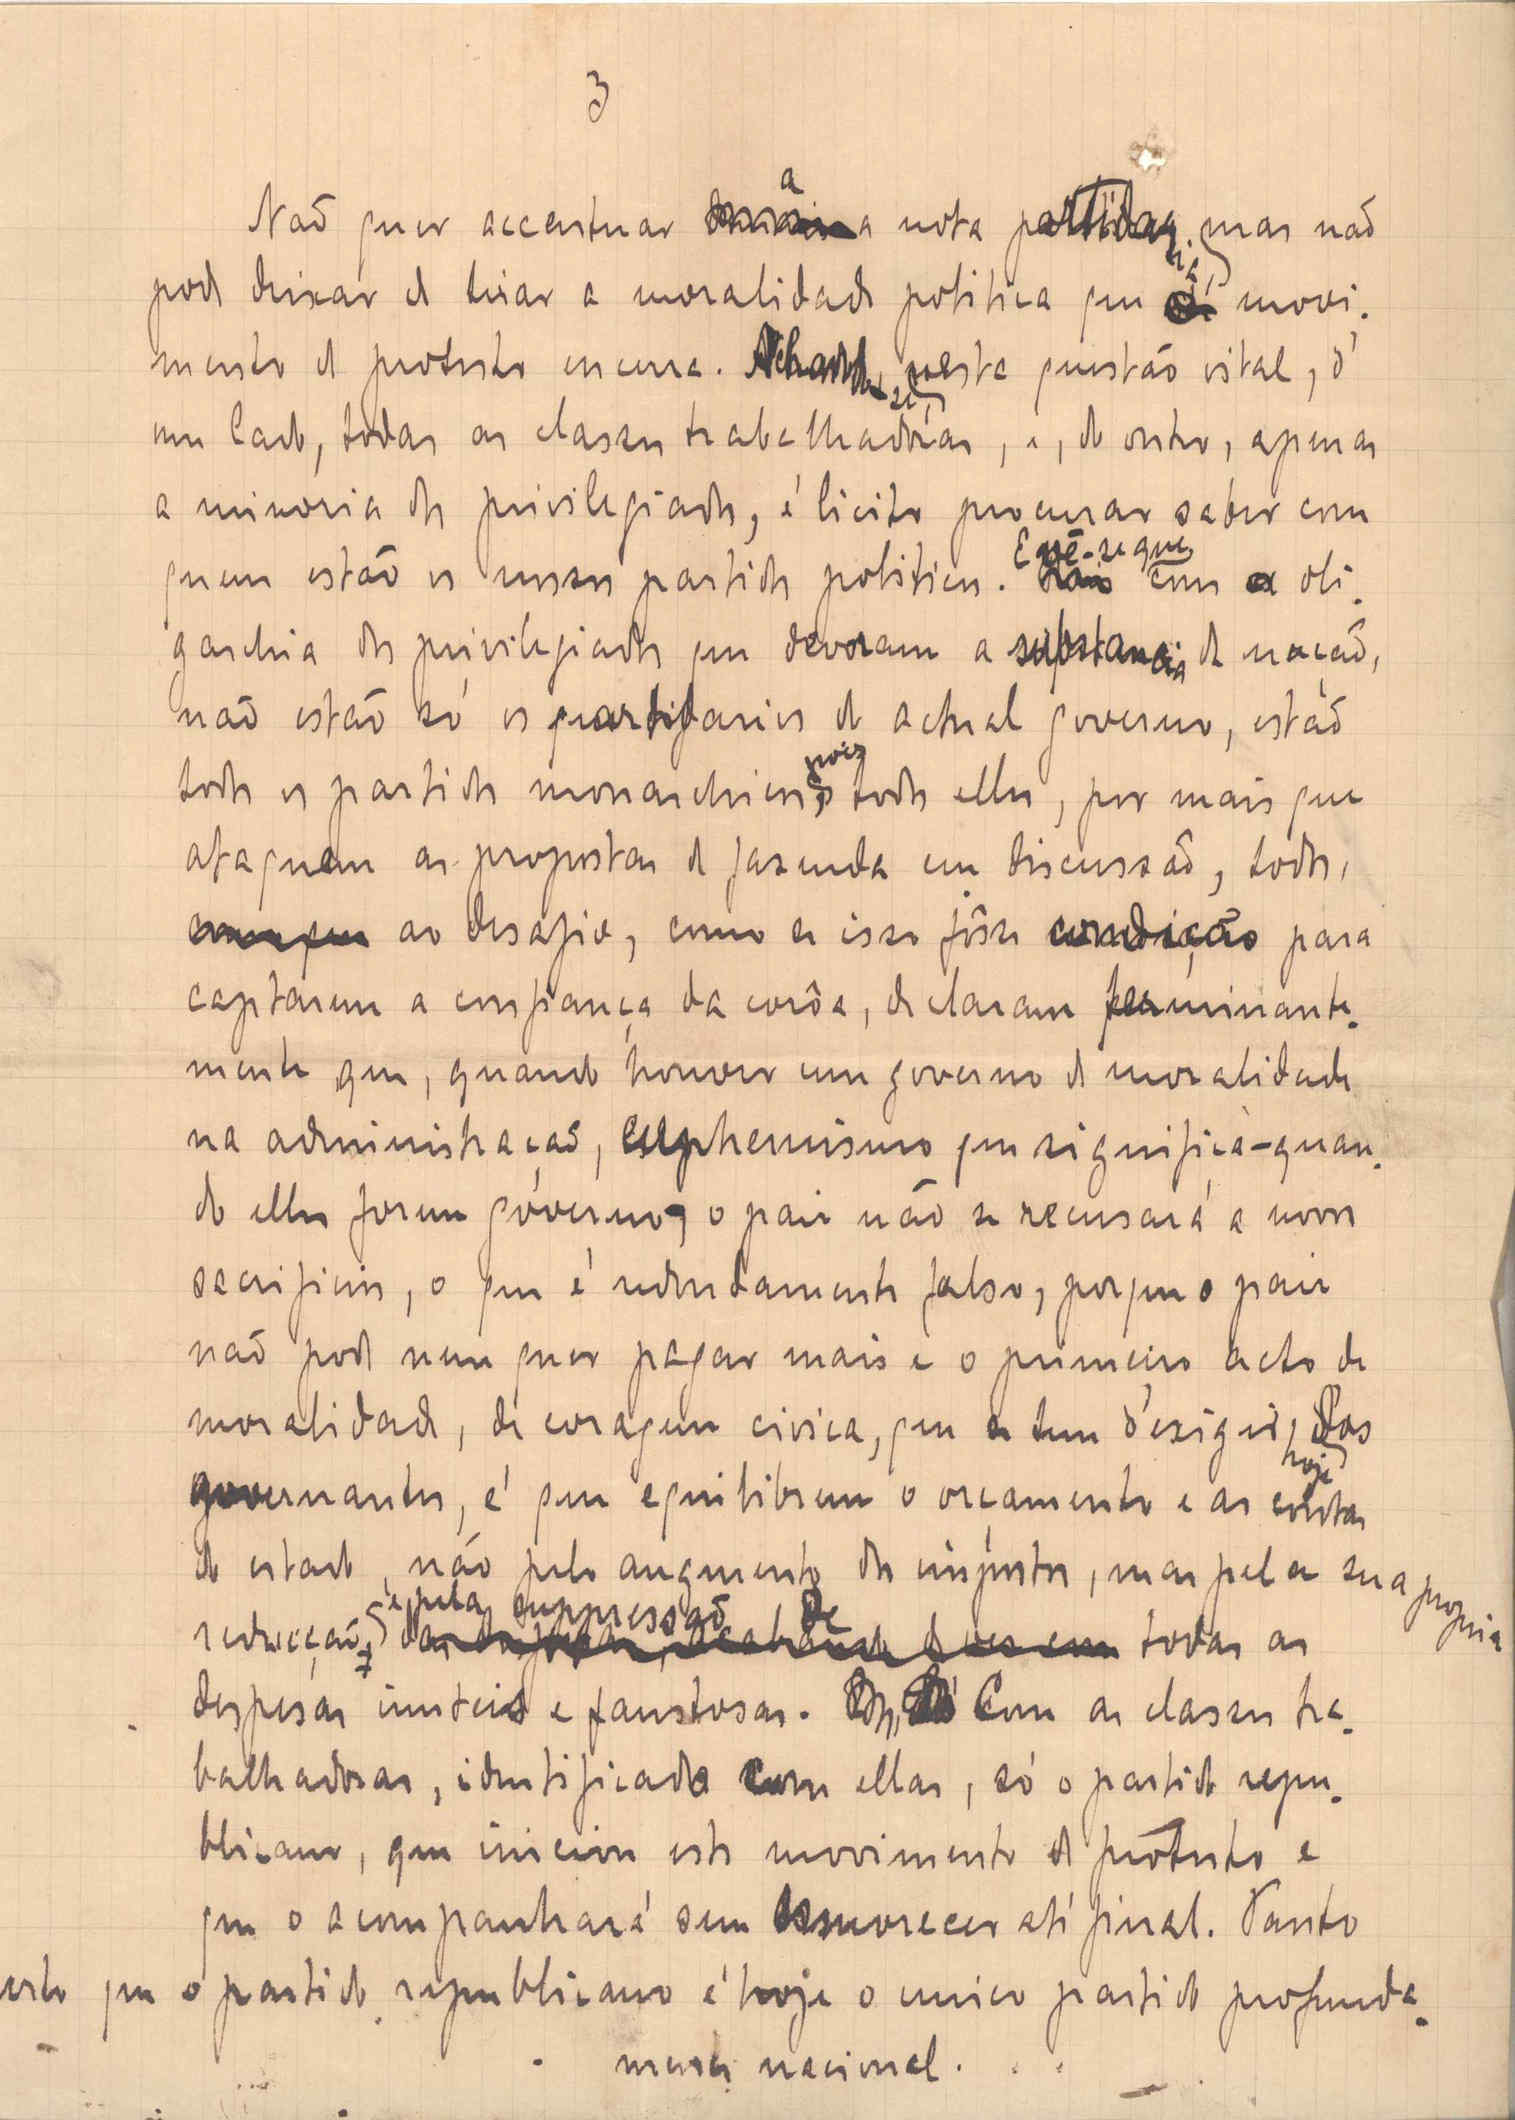 3
Não quer accentuar a nota partidaria, mas não
pode deixar de tirar a moralidade politica que o movi-
mento de protesto encerra. Achando-se, nesta questão vital, d'
um lado, todas as classes trabalhadoras, e, do outro, apenas
a minoria dos privilegiados, é licito procurar saber com
quem estão os nossos partidos politicos. E vê-se que com a oli-
garchia dos privilegiados que devoram a substancia da nação,
não estão só os partidarios do actual governo, estão
todos os partidos monarchicos, pois todos elles, por mais que
ataquem as propostas de fazenda em discussão, todos,
ao desafio, como se isso fôsse condição para
captarem a confiança da corôa, declaram terminante-
mente que, quando houver um governo de moralidade
na administração, euphemismo que significa-quan-
do elles forem govêrno, o paiz não se recusará a novos
sacrificios, o que é redondamente falso, porque o paiz
não pode nem quer pagar mais e o primeiro acto de
moralidade, de coragem civica, que se tem d'exigir, hoje, dos
governantes, é que equilibrem o orçamento e as contas
do estado, não pelo augmento dos impostos, mas pela sua propria
reducção, e pela suppressão de todas as
despesas inuteis e faustosas. Com as classes tra-
balhadoras, identificado com ellas, só o partido repu-
blicano, que iniciou este movimento de protesto e
que o acompanhará sem esmorecer até final. Tanto
certo que o partido republicano é hoje o unico partido profunda-
mente nacional.